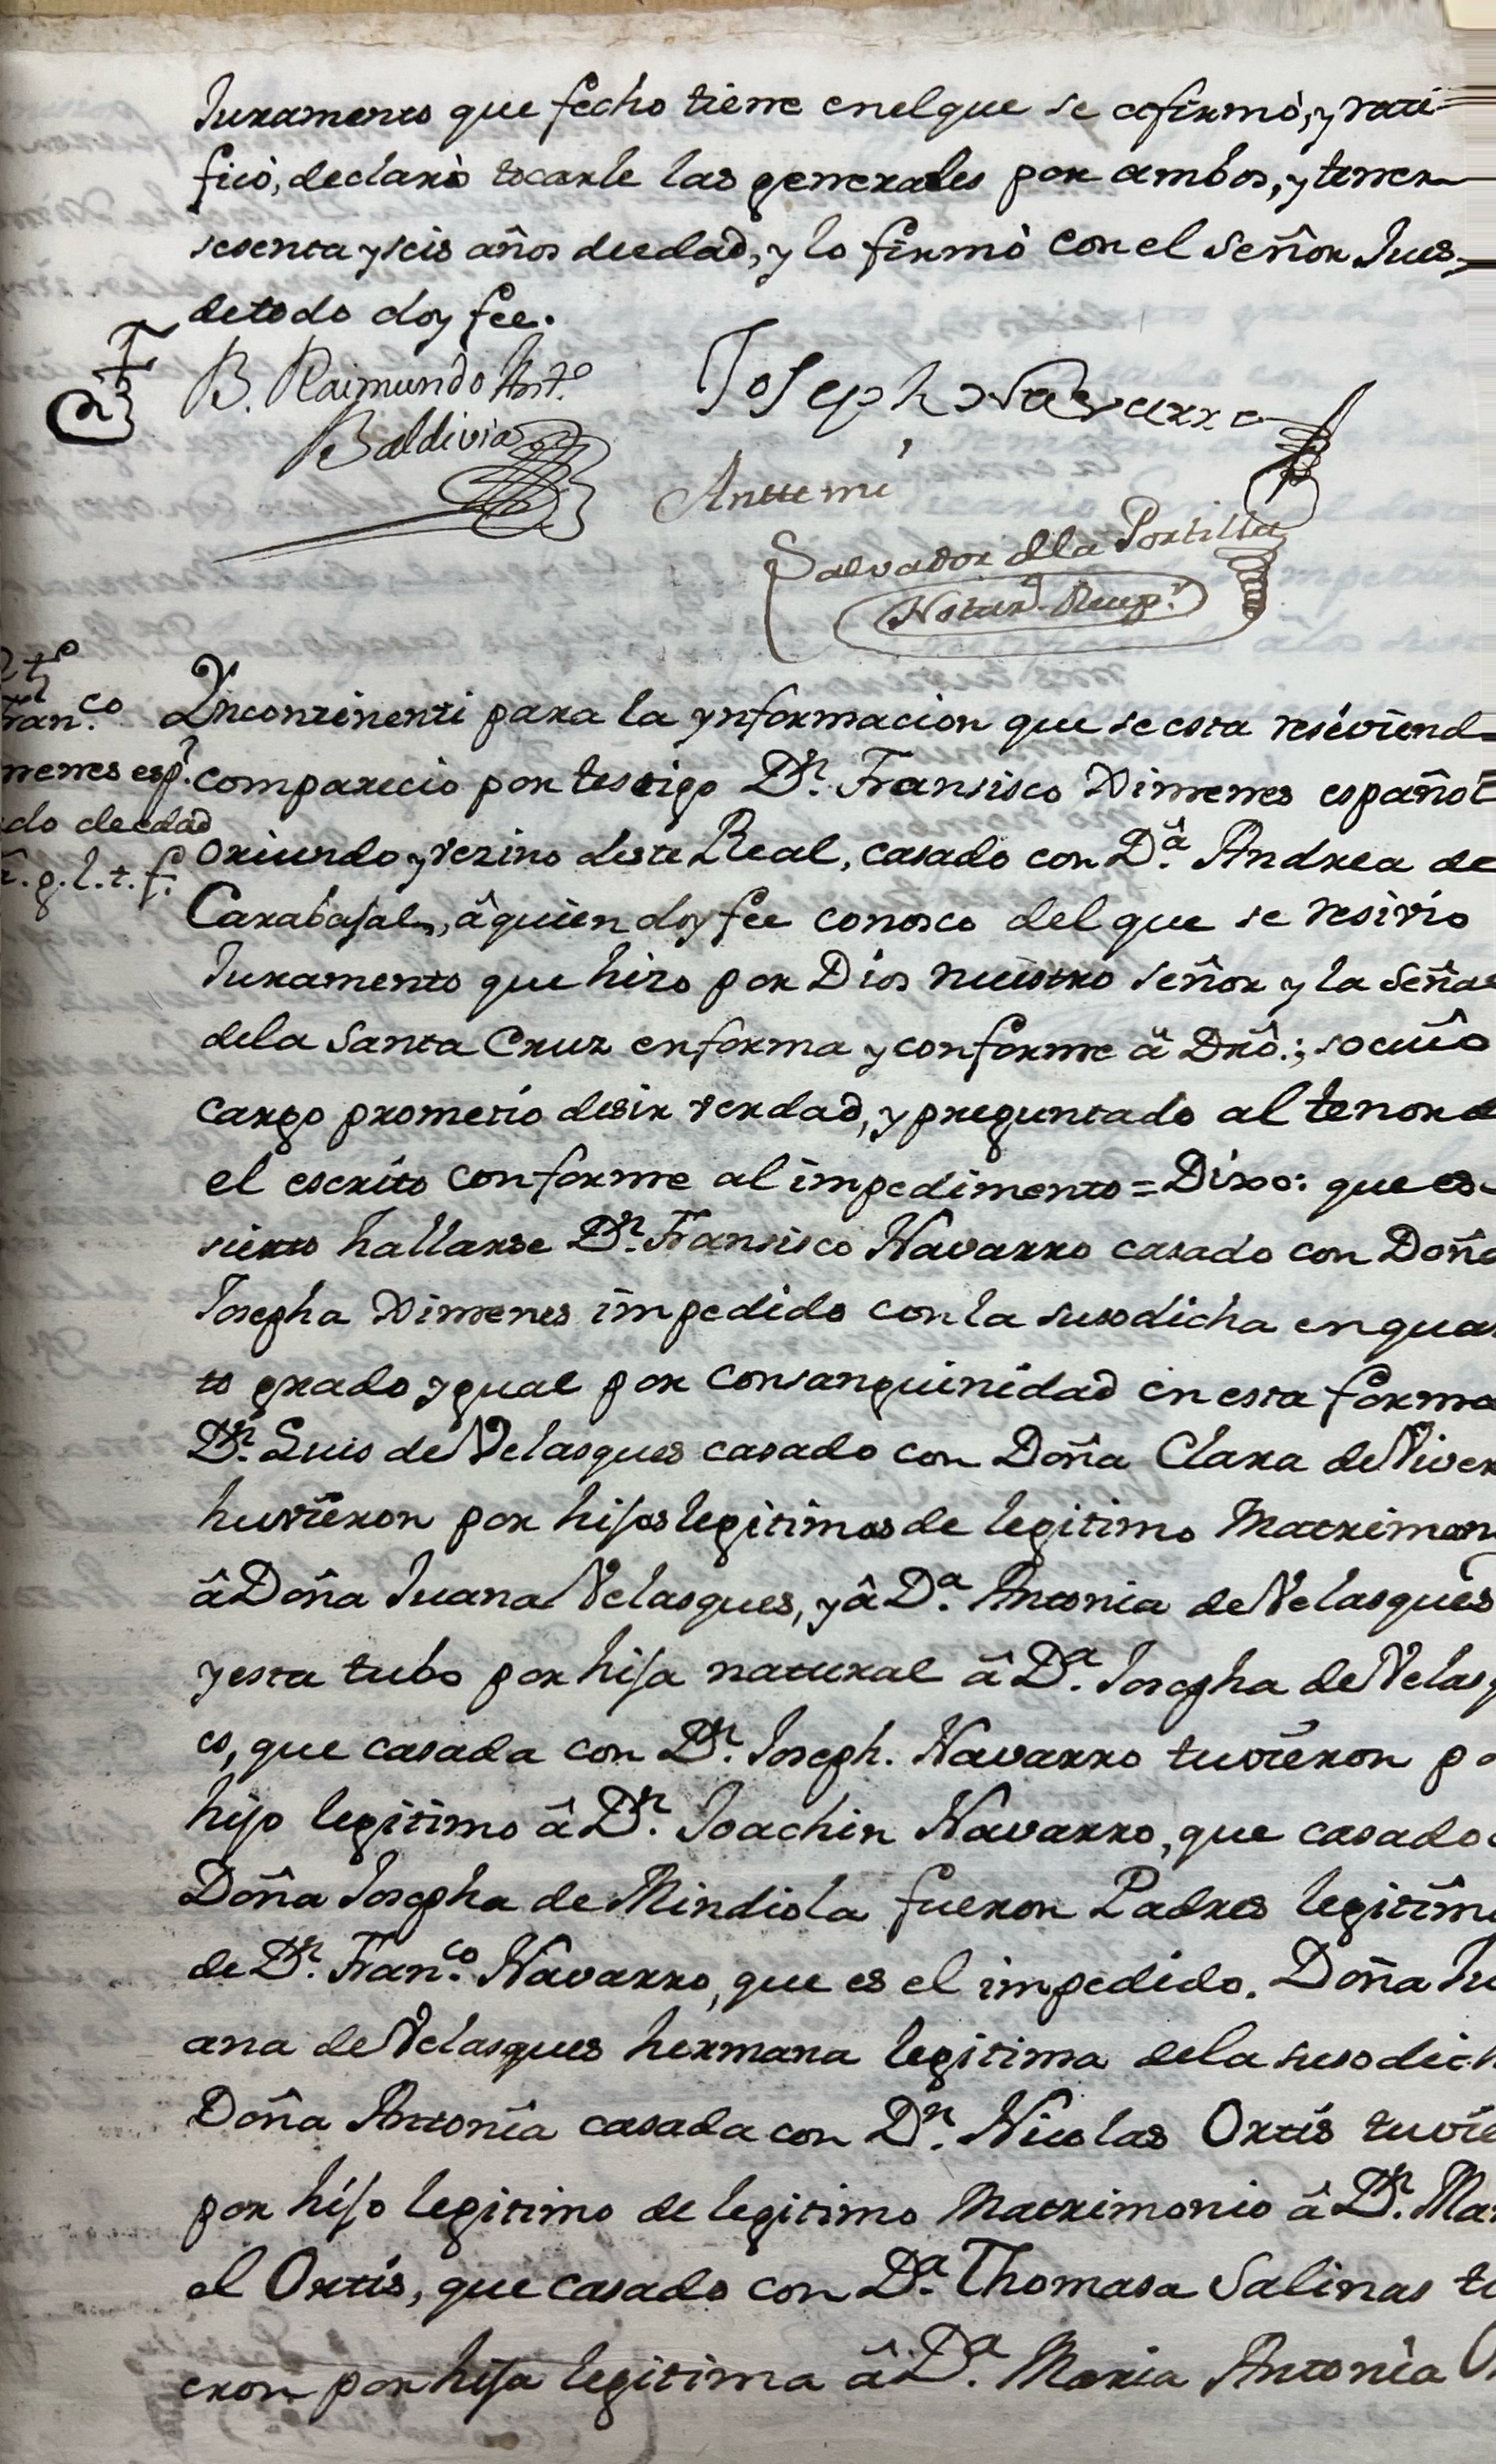 Juramento que fecho tiene enelque se cofirmò, y rati-
ficò, declarò tocarle las generales por ambos, y tener
sesenta y seis años deedad, y lo firmò con el Señor Jues,
detodo doy fee.
B. Raimundo Ant.º
Baldivia
Joseph Navarro
Antte mi
Salvador dla Portilla
Notar.º Recep.r
tº
Fran.co
menes esp.l
do deedad
g. l. t. f.
Yncontinenti para la ynformacion que se esta resiviend
comparecio por testigo D.n Fransisco Ximenes español
Oriundo y vezino deste Real, casado con D.ª Andrea de
Carabajal, â quien doy fee conosco del que se resivio
Juramento que hizo por Dios nuestro Señor y la Señal
dela Santa Cruz en forma y conforme â Dro.; socuio
cargo prometio desir verdad, y preguntado al tenor d
el escrito conforme al impedimento = Dixo: que es
sierto hallarse D.n Fransisco Navarro casado con Doña
Josepha Ximenes impedido con la susodicha enquar
to grado ygual por consanguinidad en esta forma
D.n Luis de Velasques casado con Doña Clara de Viver
huvieron por hijos legitimos de legitimo Matrimon
â Doña Juana Velasques, y â D.ª Antonia de Velasques
y esta tubo por hija natural â D.ª Josepha de Velasq
es, que casada con D.n Joseph. Navarro tuvieron po
hijo legitimo â D.n Joachin Navarro, que casado c
Doña Josepha de Mindiola fueron Padres legitim
de D.n Fran.co Navarro, que es el impedido. Doña Ju
ana de Velasques hermana legitima dela susodich
Doña Antonia casada con D.n Nicolas Ortis tuvie
por hijo legitimo de legitimo Matrimonio â D.n Man
el Ortis, que casado con D.ª Thomasa Salinas tu
eron por hija legitima â D.ª Maria Antonia O